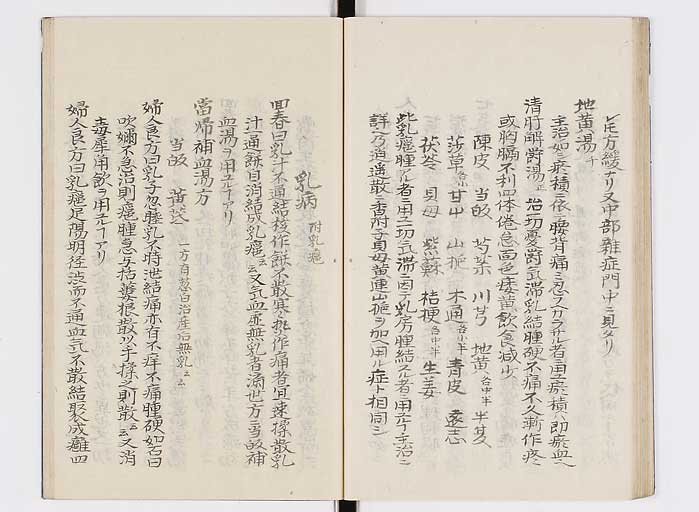 レ圧方緩ナリ又中部雜症門中ニ見タリ
地黄湯 十
主治如シ瘀積ニ依テ腰背痛ミ忍フヘカラサル者ニ用ユ瘀積ハ即瘀血也
清肝解鬱湯 正 治一切憂鬱気滞乳結腫硬不痛不久漸作疼
或胸膈不利四体倦怠面色痿黄飲食减少
陳皮 当皈 芍薬 川芎 地黄 各中半 半夏
莎草 各小 甘中 山梔 木通 各小半 青皮 遠志
茯苓 貝母 紫蘇 桔梗 各中半 生姜
此乳癰腫ルヽ者ニ用ユ一切気滞ニ因テ乳房腫結スル者ニ用ユ
詳ニ乃逍遥散ニ香附子貝母黄連山梔ヲ加ヘ用ル症ト相同シ
乳病 附乳癰
回春曰乳汁不通結核作餅不散寒熱作痛者宜速揉散乳
汁通餅自消結成乳癰云云又気血虚無乳者滴世一方ニ当皈補
血湯ヲ用ユルコアリ
當歸補血湯方
当皈 黄芪 一方自葱白治産后無乳云云
婦人良方曰乳子忽腫乳不時泄結痛亦有不痒不痛腫硬如石曰
吹嬭不急治則癰腫急与括蔞根散以手揉之則散云云又消
毒犀角飲ヲ用ユルコアリ
婦人良方曰乳癰足陽明径渋而不通血気不散結聚成癰四